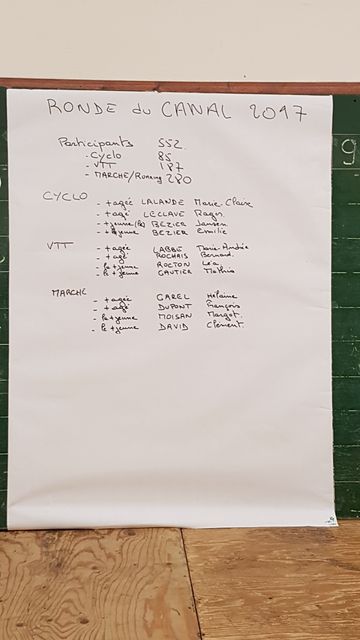 RONDE du CANAL 2017
Participants 552.
- Cyclo 85
- VTT 187
- MARCHE/Running 280
CYCLO
- + agée LALANDE Marie-Claire
- + agé LECLAVE Roger
- + jeune BEZIER
- + jeune BEZIER Emilie
VTT
- + agée LABBÉ Marie-Andrée
- + agé ROCHAIS Bernard.
- la + jeune ROCTON Léa.
- le + jeune GAUTIER Mathis
MARCHE
- + agée GAREL Hélaine
- + agé DUPONT François
- la + jeune MOISAN Margot.
- le + jeune DAVID Clément.
9